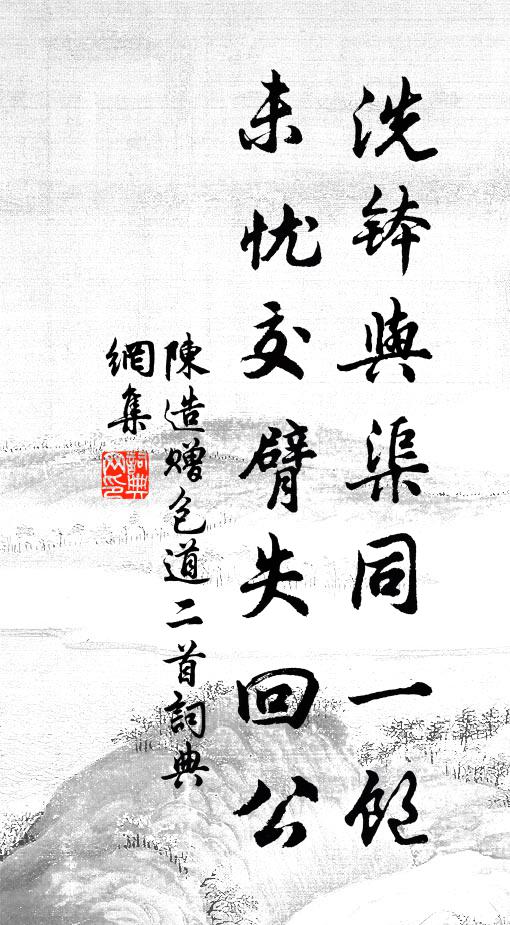 洗鉢與渠同一飽
未忧交臂失回公
陳造贈包道二首詞典
網集
詞典網印